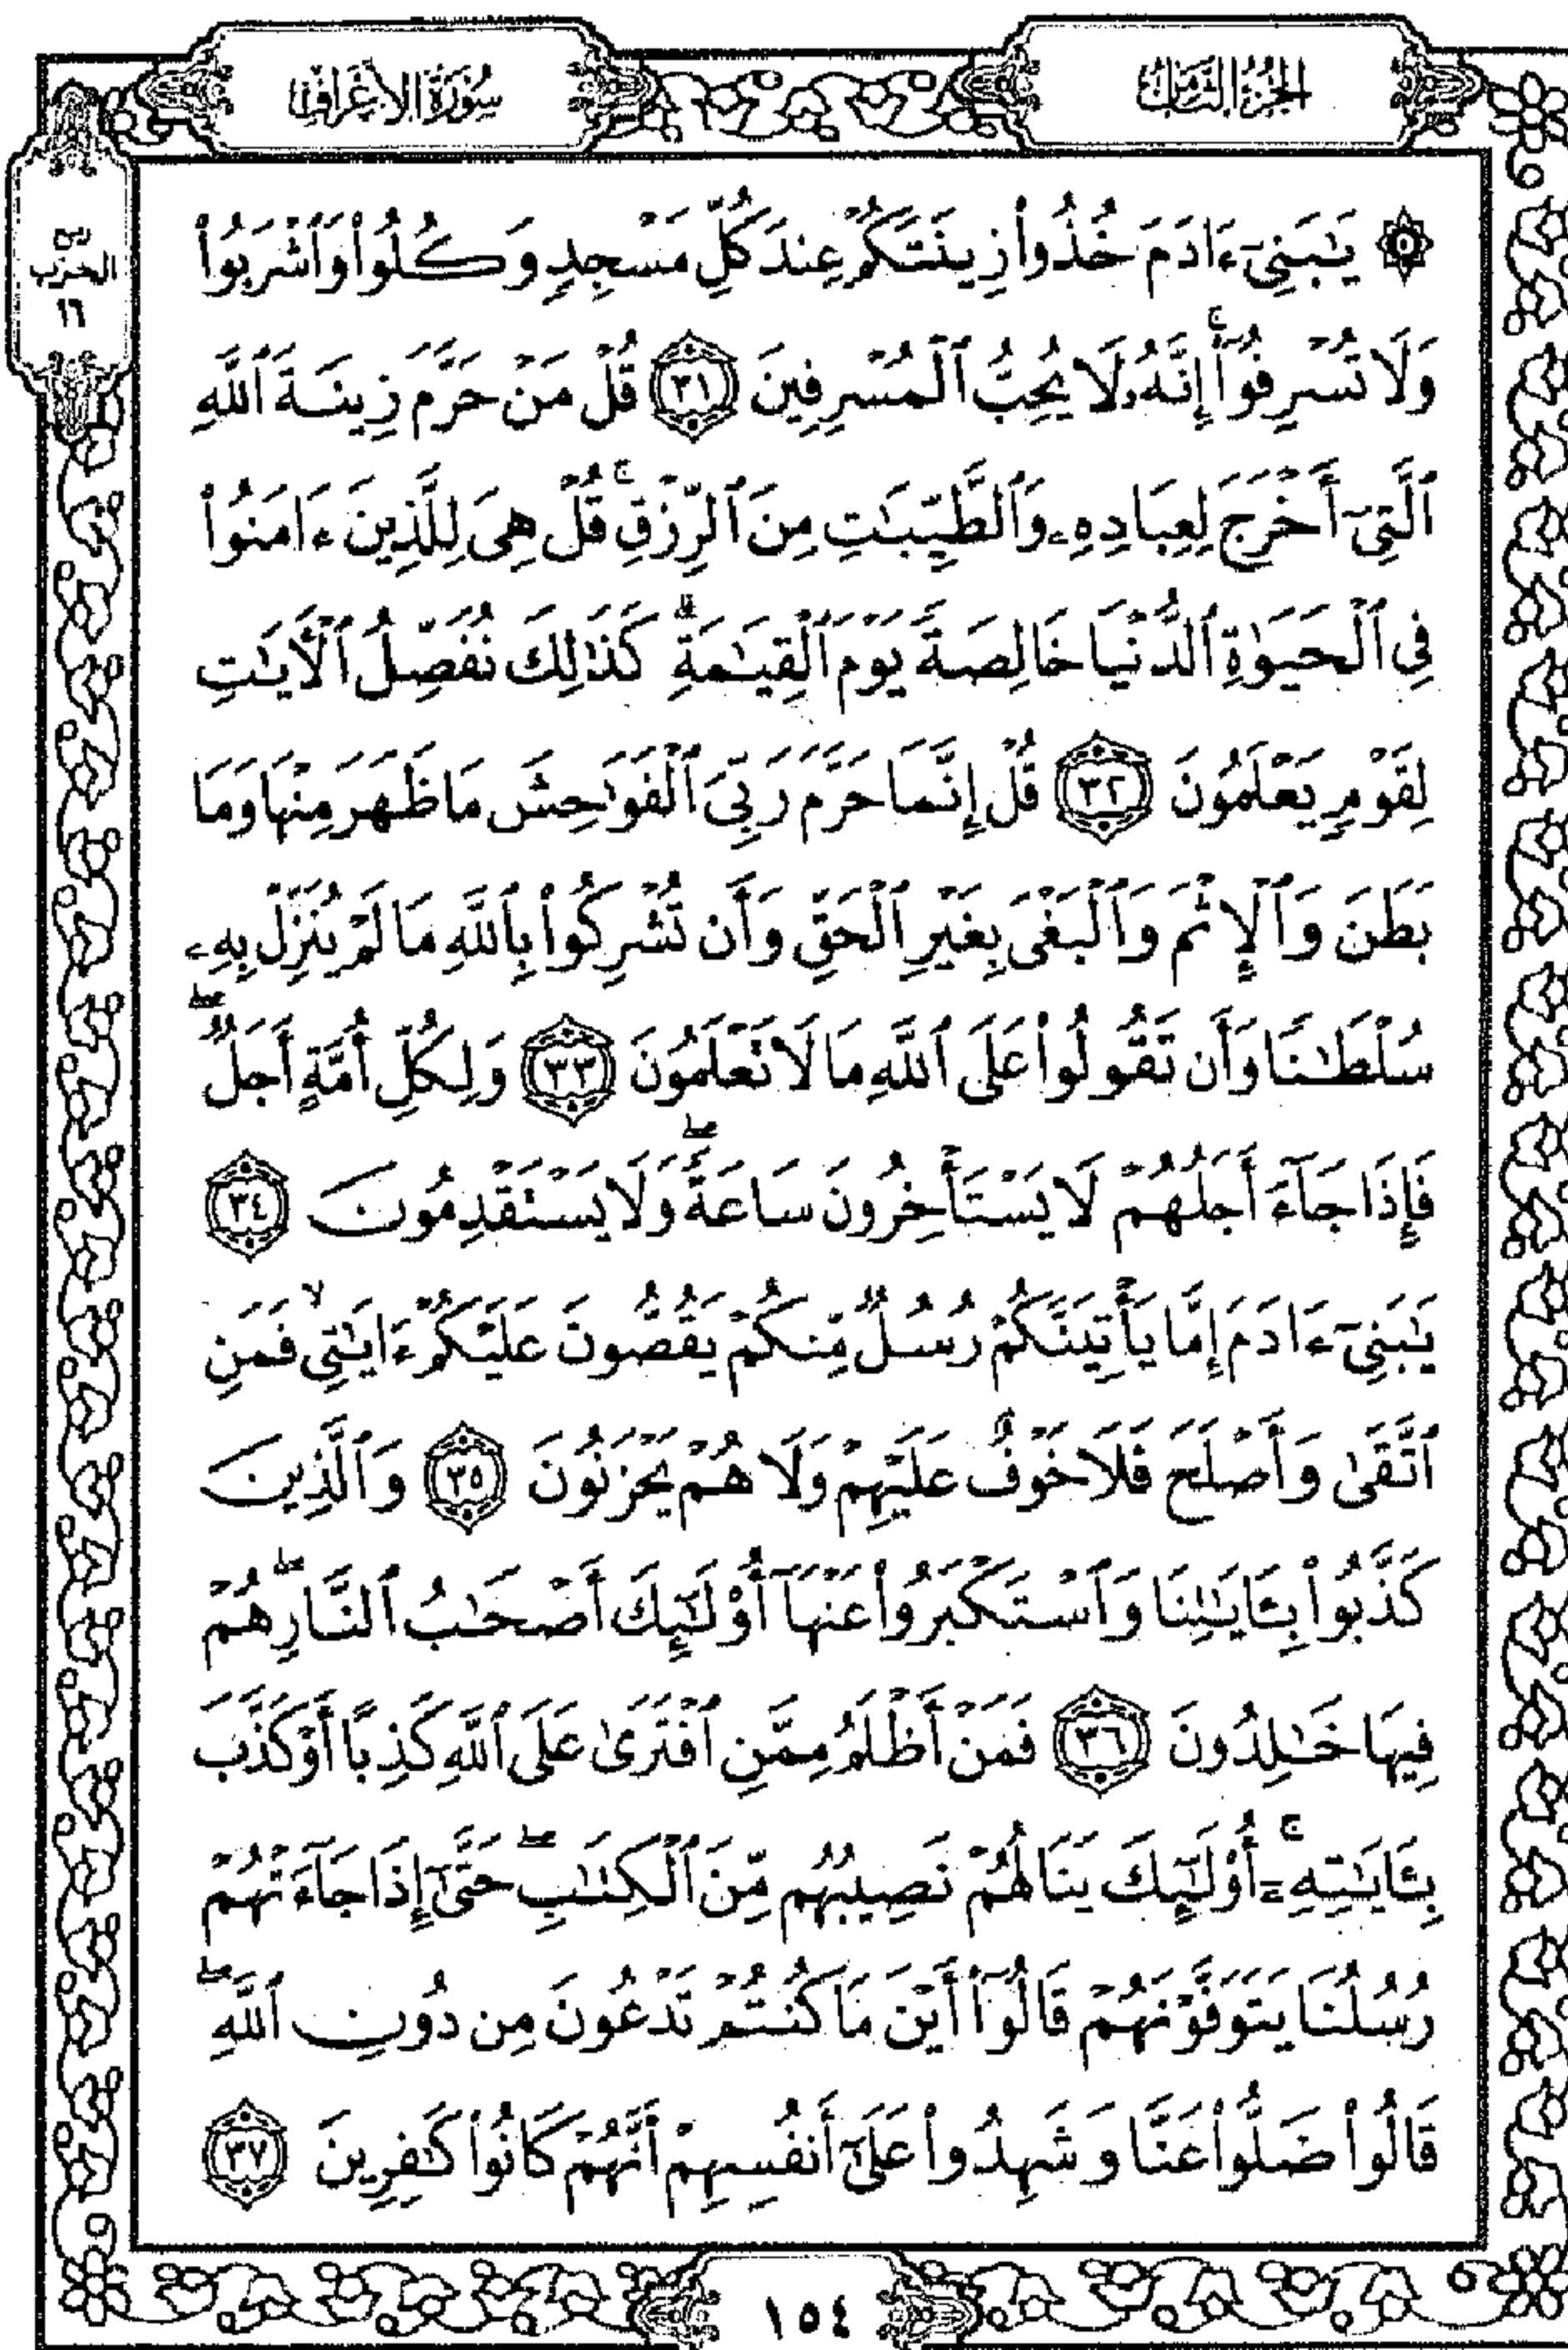 الجزء الثامن
سورة الأعراف
ربع
الحزب
١٦
۞ يَـٰبَنِىٓ ءَادَمَ خُذُوا۟ زِينَتَكُمْ عِندَ كُلِّ مَسْجِدٍ وَكُلُوا۟ وَٱشْرَبُوا۟
وَلَا تُسْرِفُوٓا۟ ۚ إِنَّهُۥ لَا يُحِبُّ ٱلْمُسْرِفِينَ ٣١ قُلْ مَنْ حَرَّمَ زِينَةَ ٱللَّهِ
ٱلَّتِىٓ أَخْرَجَ لِعِبَادِهِۦ وَٱلطَّيِّبَـٰتِ مِنَ ٱلرِّزْقِ ۚ قُلْ هِىَ لِلَّذِينَ ءَامَنُوا۟
فِى ٱلْحَيَوٰةِ ٱلدُّنْيَا خَالِصَةً يَوْمَ ٱلْقِيَـٰمَةِ ۗ كَذَٰلِكَ نُفَصِّلُ ٱلْـَٔايَـٰتِ
لِقَوْمٍ يَعْلَمُونَ ٣٢ قُلْ إِنَّمَا حَرَّمَ رَبِّىَ ٱلْفَوَٰحِشَ مَا ظَهَرَ مِنْهَا وَمَا
بَطَنَ وَٱلْإِثْمَ وَٱلْبَغْىَ بِغَيْرِ ٱلْحَقِّ وَأَن تُشْرِكُوا۟ بِٱللَّهِ مَا لَمْ يُنَزِّلْ بِهِۦ
سُلْطَـٰنًا وَأَن تَقُولُوا۟ عَلَى ٱللَّهِ مَا لَا تَعْلَمُونَ ٣٣ وَلِكُلِّ أُمَّةٍ أَجَلٌ ۖ
فَإِذَا جَآءَ أَجَلُهُمْ لَا يَسْتَأْخِرُونَ سَاعَةً ۖ وَلَا يَسْتَقْدِمُونَ ٣٤
يَـٰبَنِىٓ ءَادَمَ إِمَّا يَأْتِيَنَّكُمْ رُسُلٌ مِّنكُمْ يَقُصُّونَ عَلَيْكُمْ ءَايَـٰتِى ۙ فَمَنِ
ٱتَّقَىٰ وَأَصْلَحَ فَلَا خَوْفٌ عَلَيْهِمْ وَلَا هُمْ يَحْزَنُونَ ٣٥ وَٱلَّذِينَ
كَذَّبُوا۟ بِـَٔايَـٰتِنَا وَٱسْتَكْبَرُوا۟ عَنْهَآ أُو۟لَـٰٓئِكَ أَصْحَـٰبُ ٱلنَّارِ ۖ هُمْ
فِيهَا خَـٰلِدُونَ ٣٦ فَمَنْ أَظْلَمُ مِمَّنِ ٱفْتَرَىٰ عَلَى ٱللَّهِ كَذِبًا أَوْ كَذَّبَ
بِـَٔايَـٰتِهِۦٓ ۚ أُو۟لَـٰٓئِكَ يَنَالُهُمْ نَصِيبُهُم مِّنَ ٱلْكِتَـٰبِ ۖ حَتَّىٰٓ إِذَا جَآءَتْهُمْ
رُسُلُنَا يَتَوَفَّوْنَهُمْ قَالُوٓا۟ أَيْنَ مَا كُنتُمْ تَدْعُونَ مِن دُونِ ٱللَّهِ ۖ
قَالُوا۟ ضَلُّوا۟ عَنَّا وَشَهِدُوا۟ عَلَىٰٓ أَنفُسِهِمْ أَنَّهُمْ كَانُوا۟ كَـٰفِرِينَ ٣٧
١٥٤